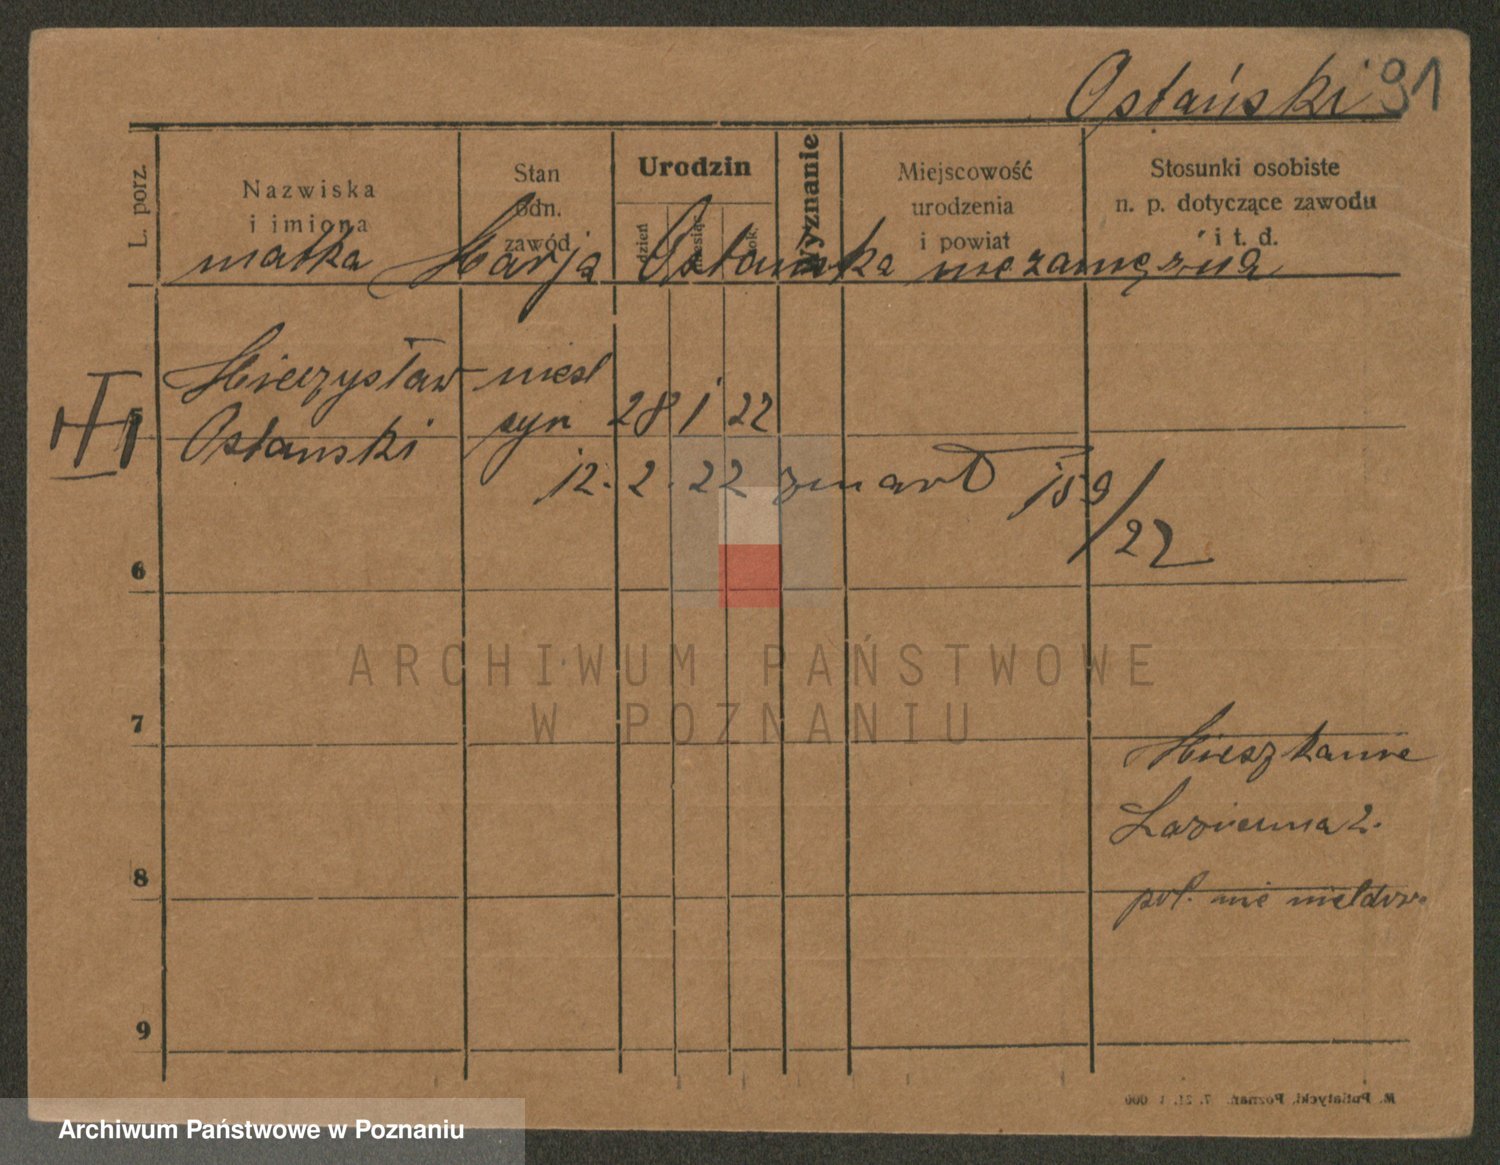 Ostański 91
L. porz.
Nazwiska
i imiona
Stan
odn.
zawód
Urodzin
dzień
miesiąc
rok
Wyznanie
Miejscowość
urodzenia
i powiat
Stosunki osobiste
n. p. dotyczące zawodu
i t. d.
matka Marja Ostańska niezamężna
Mieczysław niesl
5 Ostanski syn 28 1 22
12. 2. 22 zmarł 159/22
6
ARCHIWUM PAŃSTWOWE
W POZNANIU
7
Mieszkanie
Lazienna 2.
8
pol. nie meldow.
9
M. Putiatycki, Poznań. 7. 21. 1 000
Archiwum Państwowe w Poznaniu